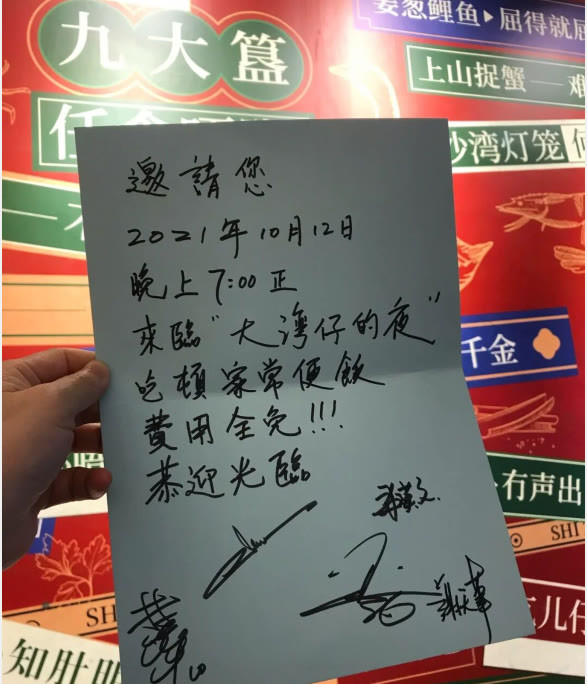 九大簋
姜葱鲤鱼▶屈得就屈
上山捉蟹——难
沙湾灯笼
千金
有声出
SHI
SH
儿仔
知肝
邀請您
2021年10月12日
晚上7:00正
來臨"大灣仔的夜"
吃頓家常便飯
費用全免!!!
恭迎光臨